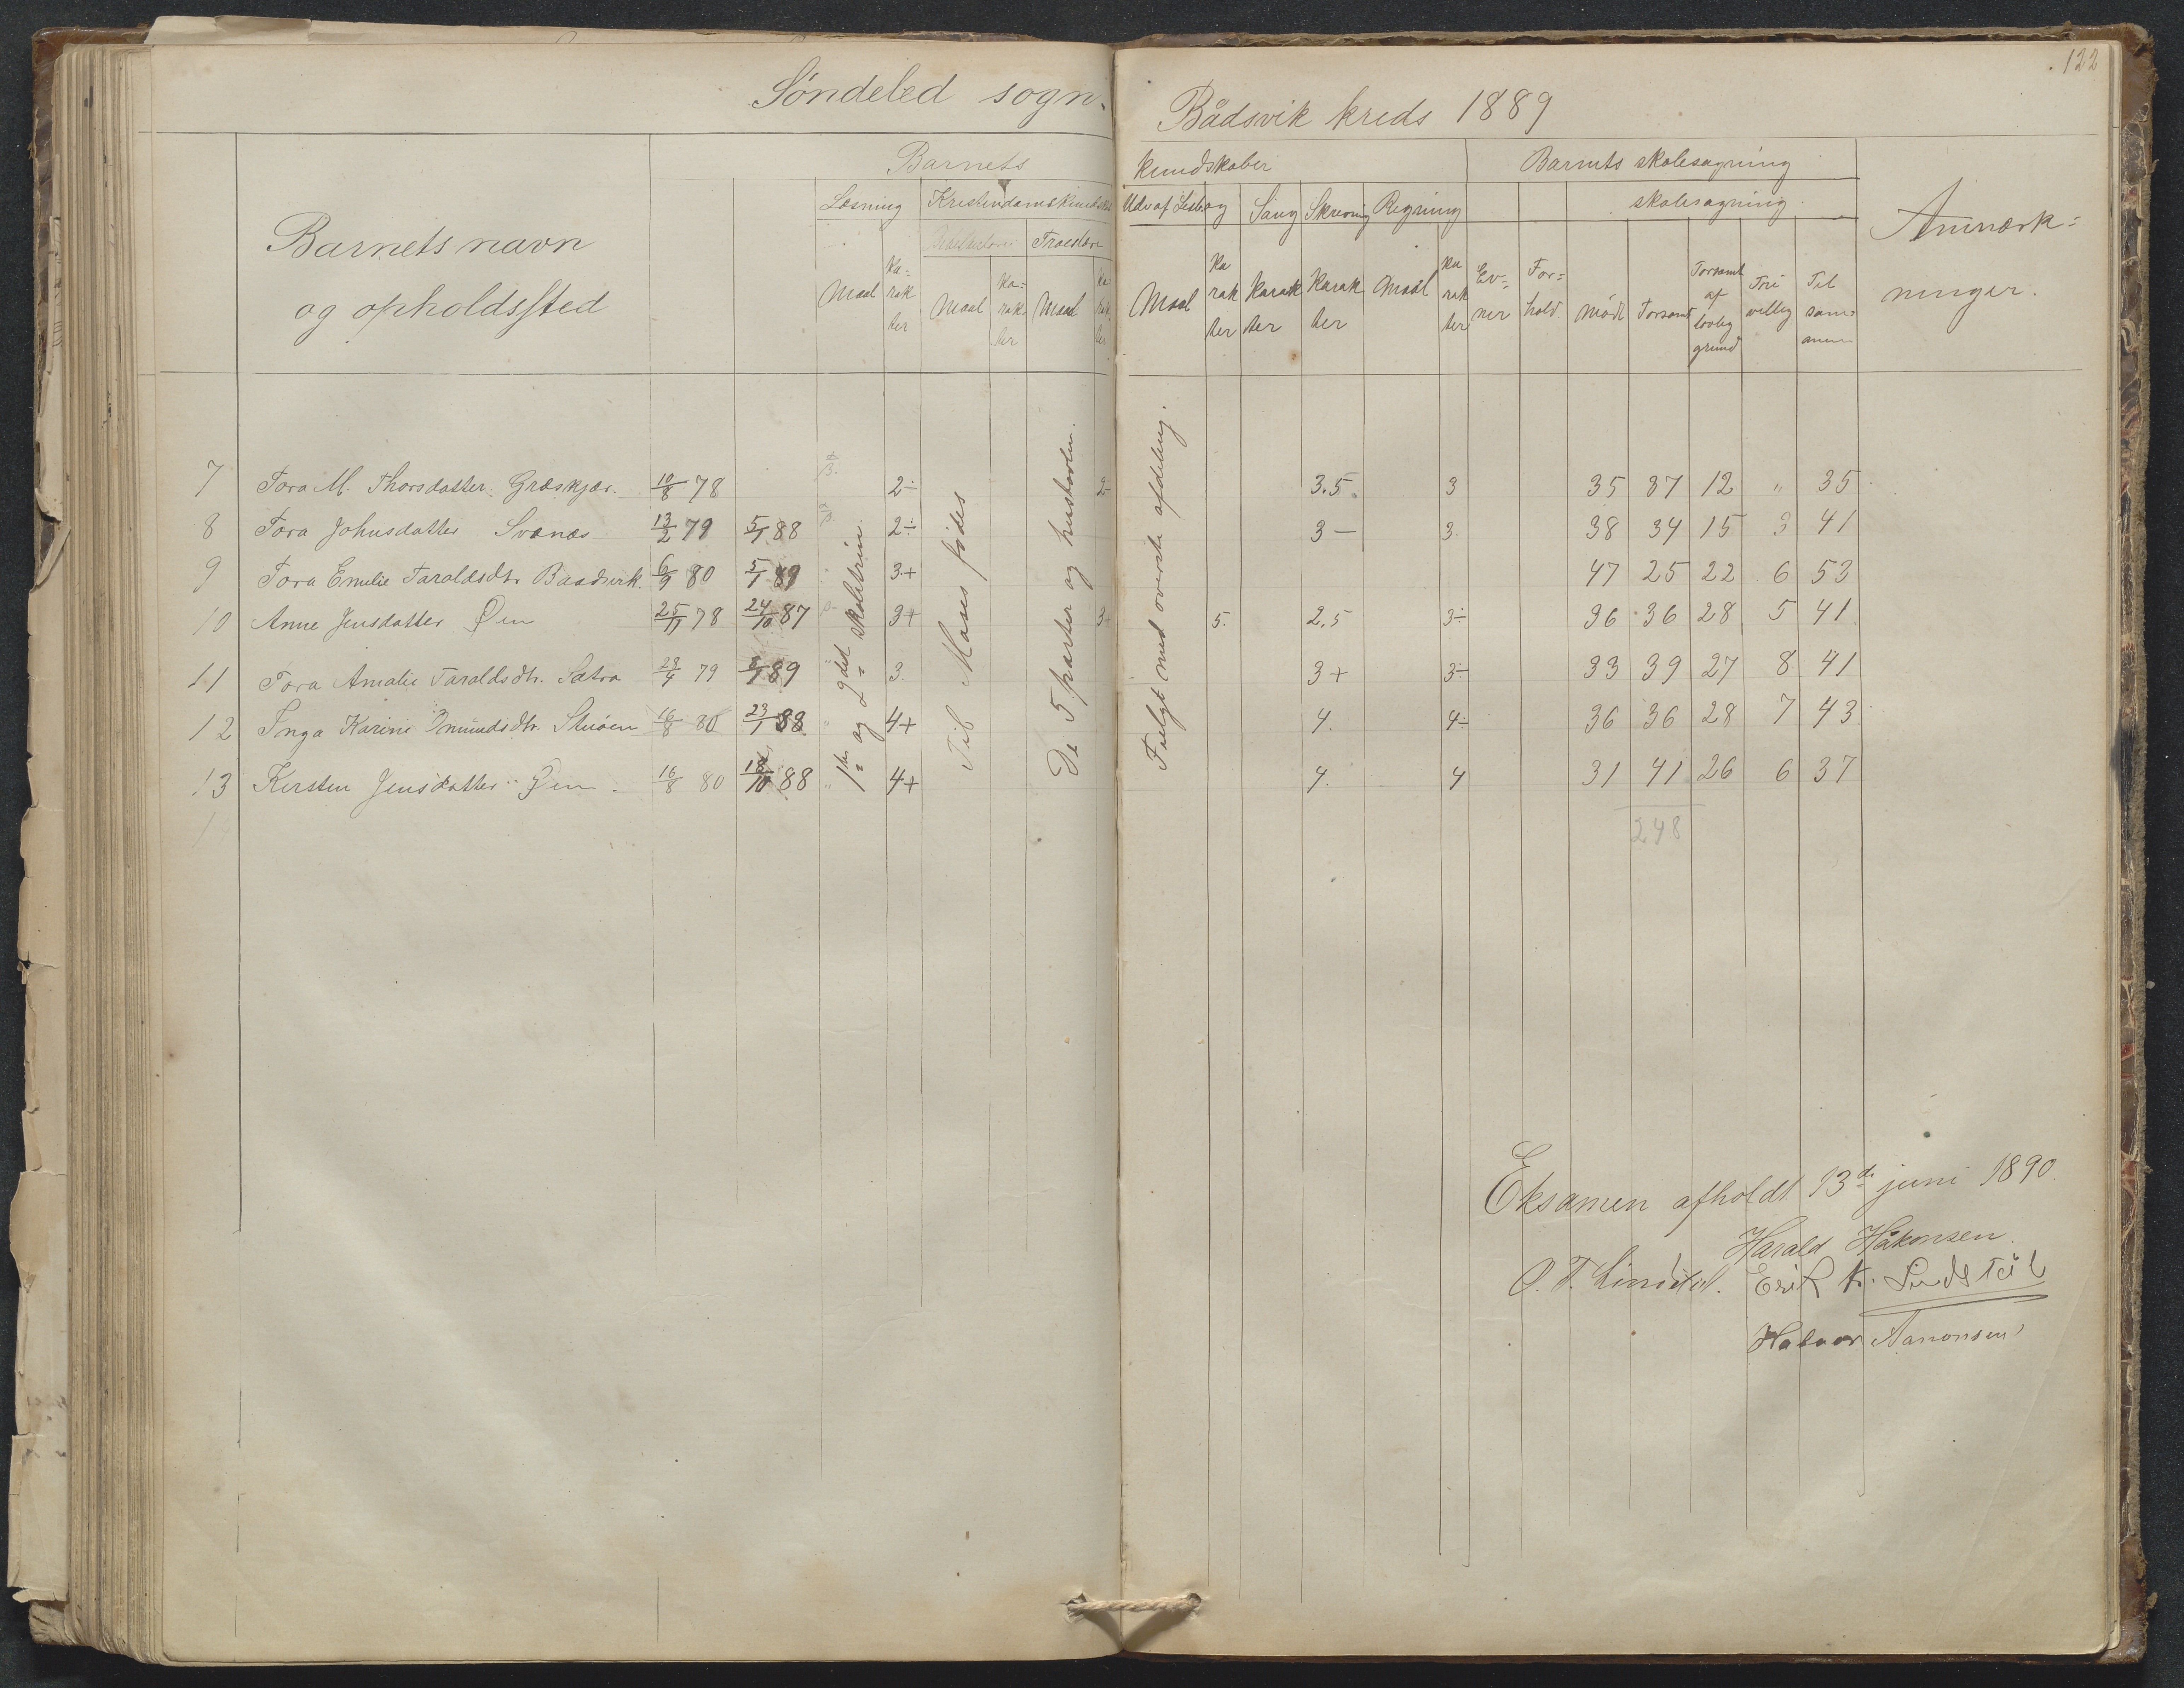 122
Søndeled sogn.
Bådsvik kreds 1889
Barnets navn og opholdssted
Barnets kundskaber
Læsning
Maal
Ka= rak ter
Kristendomskundskab
Maal
Ka= rak ter
Troeslære
Maal
Ka rak ter
Udv af Læsbog
Maal
Ka rak ter
Sang
Karak ter
Skrivning
Karak ter
Regning
Maal
Ka rak ter
Barnets skolesøgning
Ev= ner
For= hold
skolesøgning
mødt
Forsømt
Forsømt af lovlig grund
Fri villig
Til sam= men
Anmærk= ninger.
1ste og 2det skoletrin.
Til Moses fødes
De 5 parter og hustavlen.
Fulgt med øverste afdeling.
7 Tora M. Thorsdatter. Græskjær. 10/8 78 2÷ 2÷ 3.5 3 35 37 12 " 35
8 Tora Johnsdatter Svænæs 13/2 79 5/1 88 2÷ 3— 3. 38 34 15 3 41
9 Tora Emelie Taraldsdtr 6/9 80 5/1 89 3+ 47 25 22 6 53
10 Anne Jensdatter Øen 25/11 78 24/10 87 3+ 3+ 5. 2,5 3÷ 36 36 28 5 41
11 Tora Amalie Taraldsdtr. Sætra 23/4 79 89 3. 3+ 3÷ 33 39 27 8 41
12 Inga Karine 16/8 80 23/1 88 4+ 4. 4÷ 36 36 28 7 43
13 Kersten Jensdatter Øen. 16/8 80 18/10 88 4+ 4. 4 31 41 26 6 37
14
248
Eksamen afholdt 13de juni 1890.
Harald Håkonsen.
O. T. Lindstøl. Erik K. Lindstøl
Halvor Aanonsen